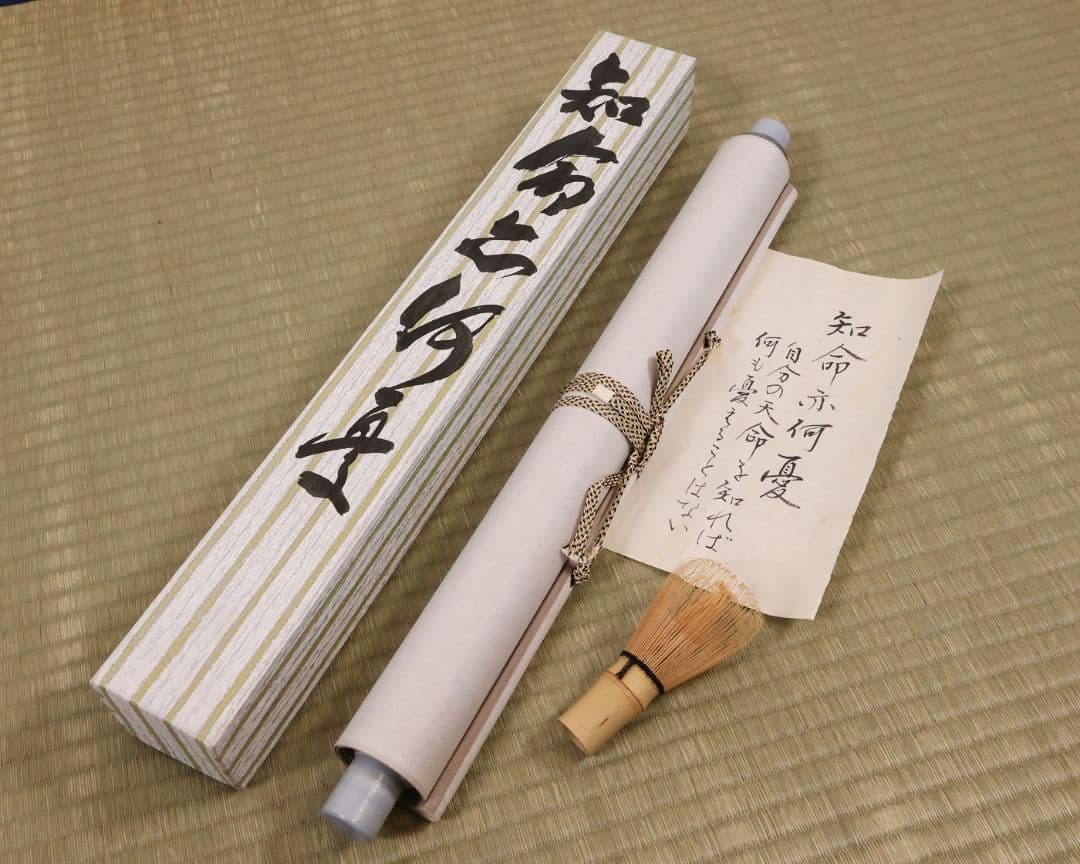 知命亦何憂
知命亦何憂
自分の天命を知れば
何も憂えることはない